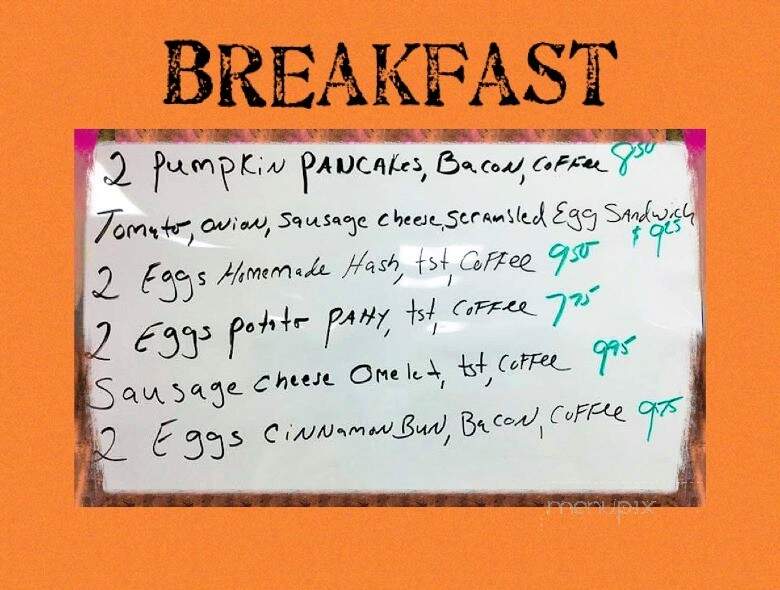 BREAKFAST
2 Pumpkin PANCAKes, BACON, COFFee 8 50
Tomato, onion, Sausage cheese, scrambled Egg SANdwich
$ 9 25
2 Eggs Homemade Hash, tst, Coffee 9 50
2 Eggs potato PAtty, tst, COFFee 7 75
Sausage cheese Omelet, tst, Coffee 9 95
2 Eggs CiNNamon BuN, BACON, COFFee 9.75
menupix